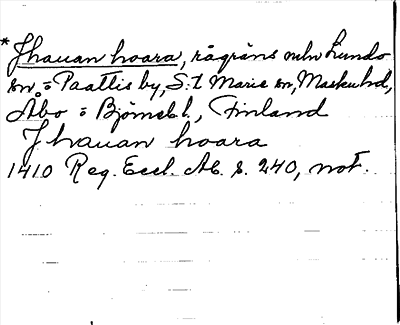 *Jhauan hoara, rågräns mlm Lundo
sn. o Paattis by, S:t Marie sn, Maskuhd,
Åbo o Björneb.l., Finland
Jhauan hoara
1410 Reg. Eccl. Ab. s. 240, not.